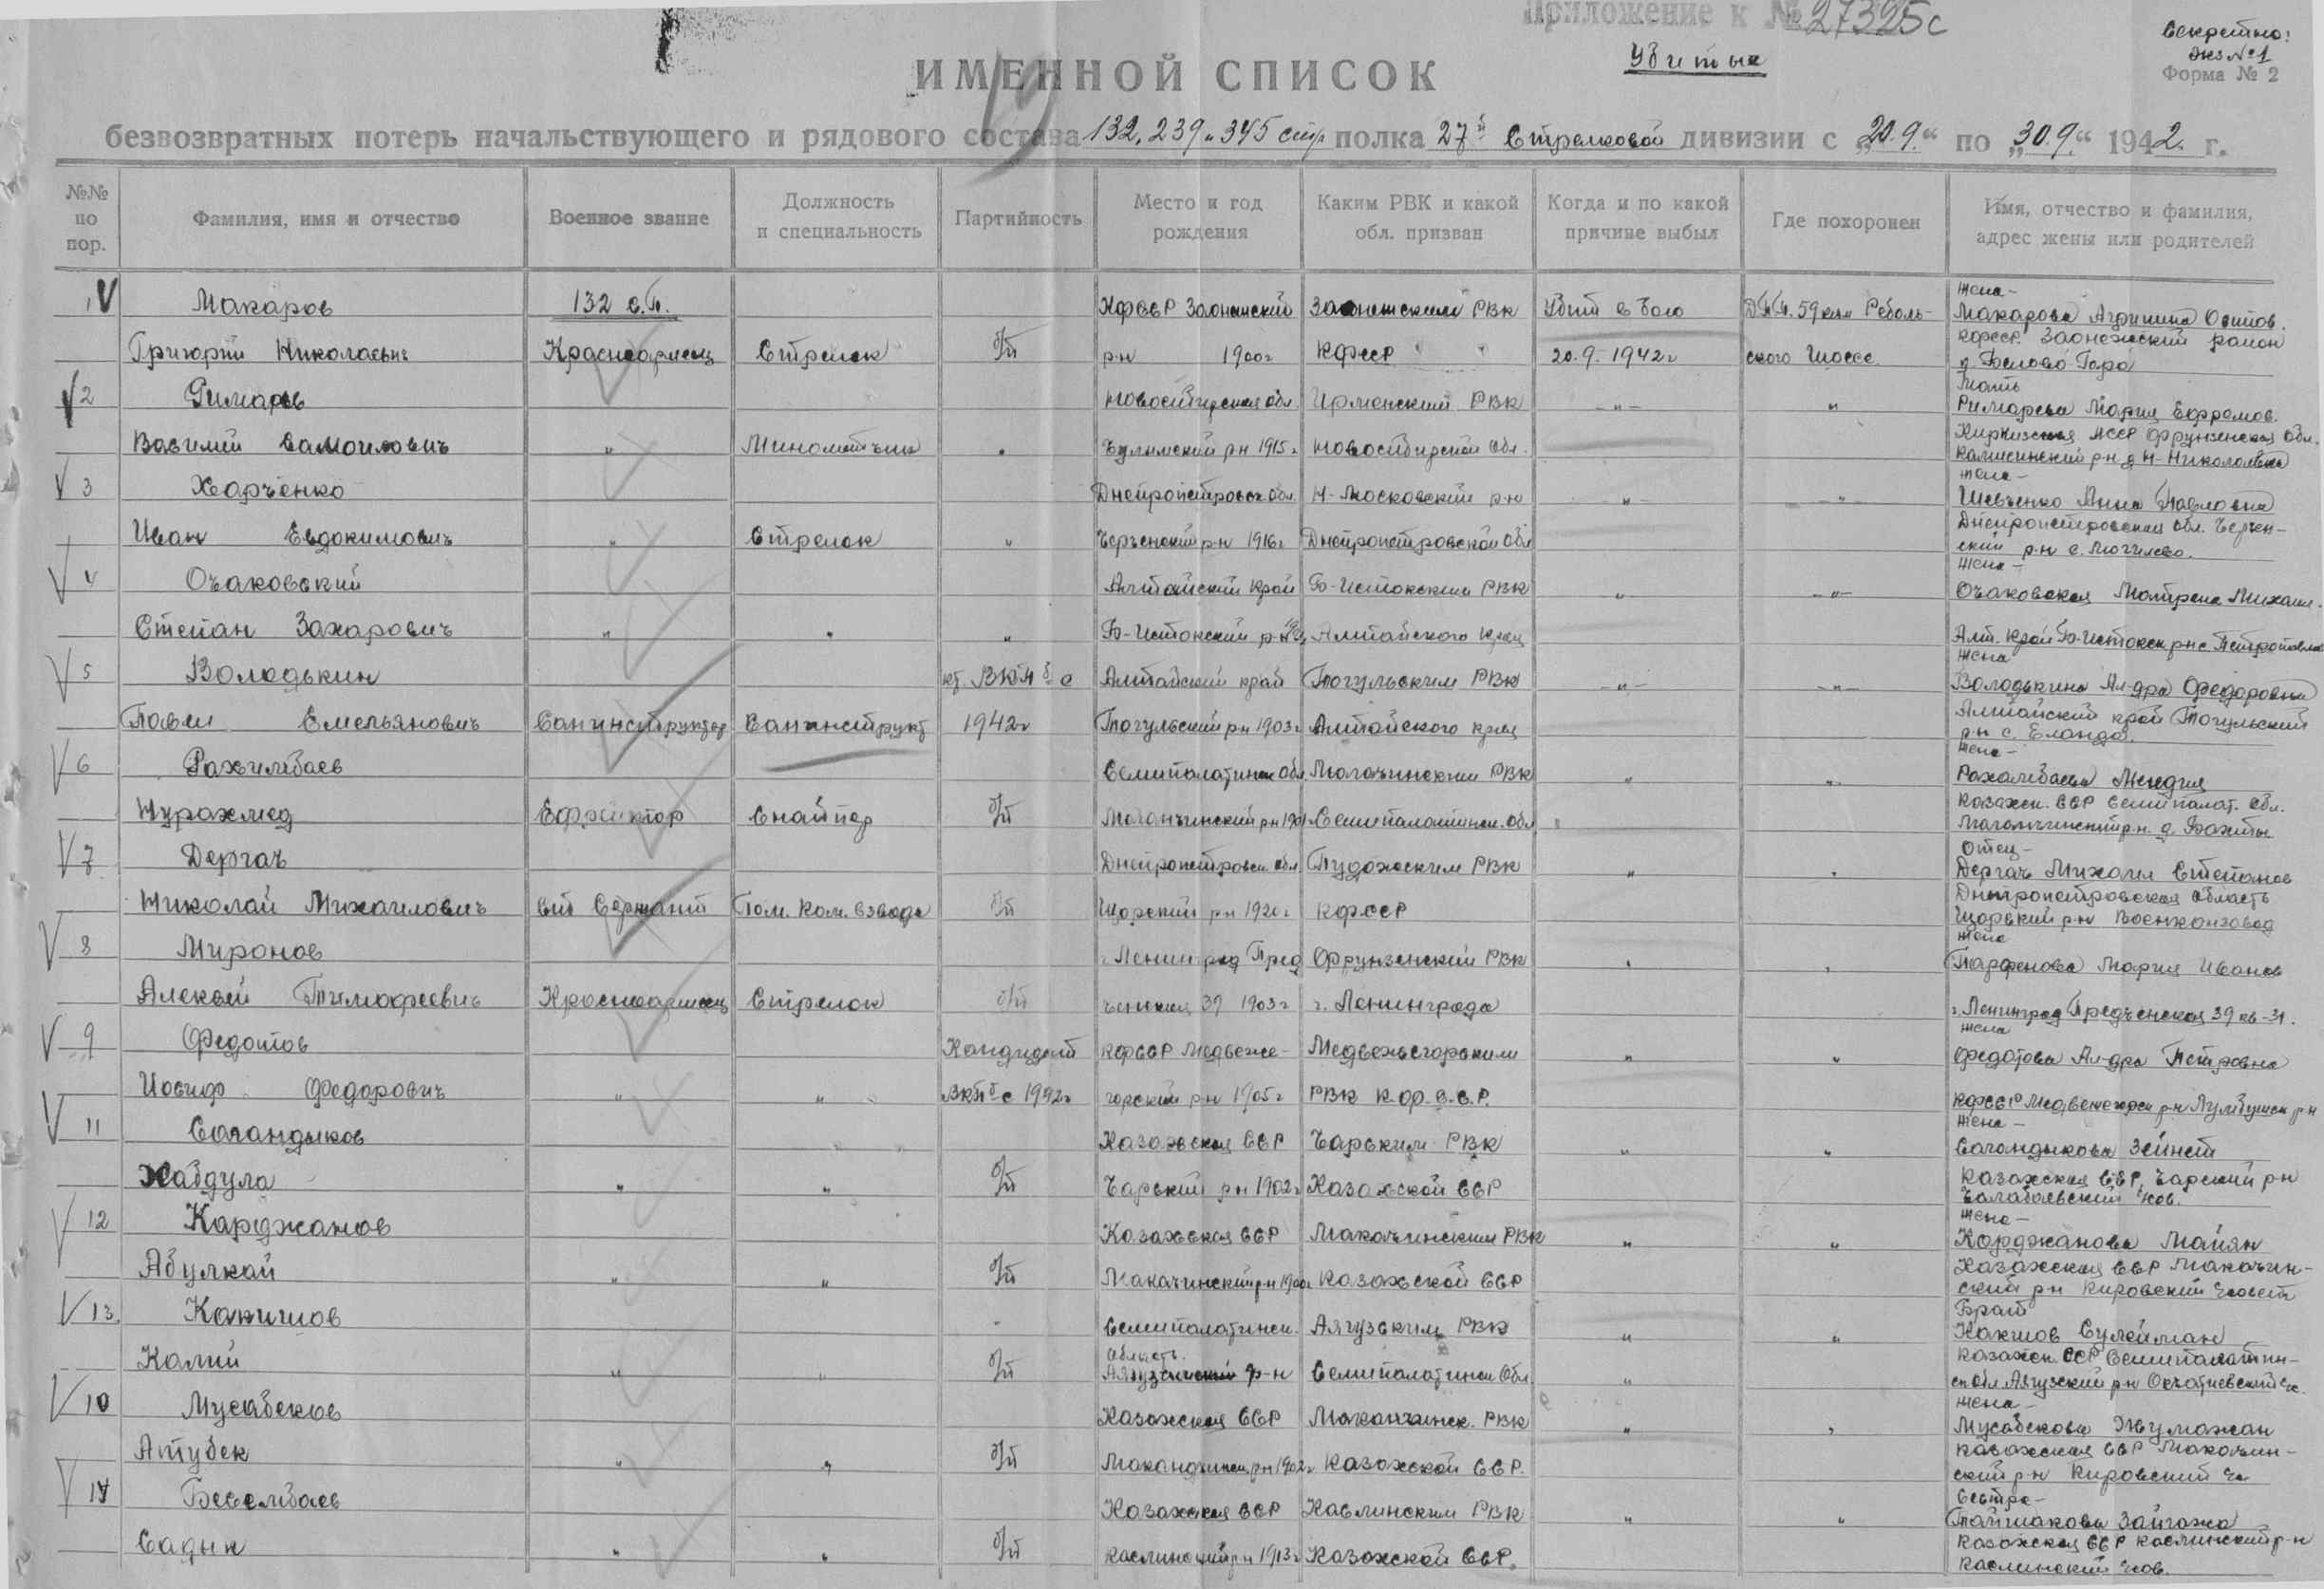 Приложение к № 27325с
Секретно:
Экз №1
Форма № 2
Убитые
ИМЕННОЙ СПИСОК
безвозвратных потерь начальствующего и рядового состава 132, 239 и 345 стр полка 27й Стрелковой дивизии с „20.9.“ по „30.9.“ 1942 г.
№№ по пор.
Фамилия, имя и отчество
Военное звание
Должность и специальность
Партийность
Место и год рождения
Каким РВК и какой обл. призван
Когда и по какой причине выбыл
Где похоронен
Имя, отчество и фамилия, адрес жены или родителей
1 Макаров 132 с.п. КФССР Заонежский Заонежским РВК Убит в бою 59 км Реболь- Жена- Макарова Осипов.
Григорий Николаевич Красноармеец Стрелок б/п р-н 1900г КФССР " " 20.9.1942г ского шоссе КФССР. Заонежский район
2 Римарев Новосибирская обл. Ирменский РВК -„- „ Мать Римарева Мария Ефремов.
Василий Самойлович „ Минометчик „ Чулымский р-н 1915г Новосибирской обл. Киргизская ССР Фрунзенская обл.
Калининский р-н д Н-Николаевка
3 Харченко Днепропетровск. обл. Н-Московский р-н „ „ Жена- Шевченко Анна Павловна
Иван Евдокимович „ Стрелок „ р-н 1916г Днепропетровской обл Днепропетровская обл.
ский р-н с. Могилево.
4 Очаковский Алтайский край Б-Истокским РВК „ -„- Жена- Очаковская Матрена Михайл.
Степан Захарович „ „ „ Б-Истокский р-н Алтайского края Алт. край Б-Истокск р-н с Петропавлов
5 Володькин кт ВКПб с Алтайский край Тогульским РВК -„- -„- Жена Володькина Ал-дра Федоровна
Павел Емельянович Санинструктор Санинструкт 1942г Тогульский р-н 1903г Алтайского края Алтайский край Тогульский
р-н с. Еланда.
6 Рахимбаев Семипалатинск обл. Маканчинским РВК „ „ Жена-
Нурахмед Ефрейтор Снайпер б/п Маканчинский р-н 1901 Семипалатинск. обл Казахск. ССР Семипалат. обл.
Маканчинский р-н. д. Бахты
7 Дергач Днепропетровск. обл Пудожским РВК „ „ Отец- Дергач Михаил Степанов
Николай Михайлович Ст Сержант Пом. Ком. взвода б/п Щорский р-н 1920г КФССР Днепропетровская область
Щорский р-н Военконзавод
8 Миронов г. Ленинград Пред Фрунзенский РВК „ „ Жена Парфенова Мария Иванов
Алексей Тимофеевич Красноармеец Стрелок б/п ченская 39 1903г г. Ленинграда г. Ленинград Предченская 39 кв-31.
9 Федотов Кандидат КФССР Медвеже- Медвежьегорским „ „ Жена Федотова Ал-дра Петровна
Иосиф Федорович „ „ ВКПб с 1942г горский р-н 1905г РВК К.Ф.С.С.Р. КФССР Медвежегорск р-н
11 Сагандыков Казахская ССР Чарским РВК „ „ Жена- Сагандыкова Зейнет
Хабдула „ „ б/п Чарский р-н 1902г Казахской ССР Казахская ССР, Чарский р-н
12 Карджанов Казахская ССР Маканчинским РВК „ „ Жена- Карджанова Майян
Абулкай „ „ б/п Маканчинский р-н 1900г Казахской ССР Казахская ССР Маканчин-
ский р-н Кировский с/совет
13. Какишов Семипалатинск. Аягузским РВК „ „ Брат Какишов Сулейман
Калий „ „ б/п область. Аягузский р-н Семипалатинск Обл. „ Казахск. ССР Семипалатин-
ск обл. Аягузский р-н
10 Мусабеков Казахская ССР Маканчинск. РВК „ „ Жена- Мусабекова Жумажан
Атубек „ „ б/п Маканчинск. р-н 1902г Казахской ССР. Казахская ССР Маканчин-
ский р-н Кировский
14 Бесембаев Казахская ССР Каслинским РВК „ „ Сестра-
Садык „ „ б/п Каслинский р-н 1913г Казахской ССР. Казахская ССР Каслинский р-н
Каслинский с/сов.